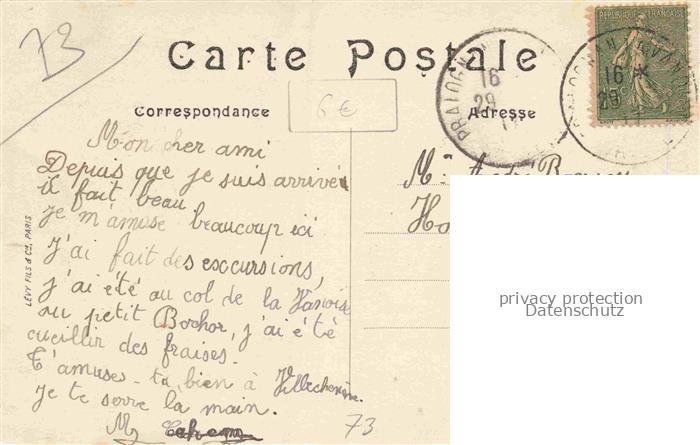 73
Carte Postale
REPUBLIQUE FRANÇAISE
PRALOGNAN
16
29
PRALOGNAN LA VANOISE
16 *
29
Correspondance
6 €
Adresse
Mon cher ami
Depuis que je suis arrivé
il fait beau
je m'amuse beaucoup ici
J'ai fait des excursions,
j'ai été au col de la Vanoise
au petit Bochor, j'ai été
cueillir des fraises.
T'amuses-tu bien à
Je te serre la main.
LÉVY FILS & Cie, PARIS
73
privacy protection
Datenschutz